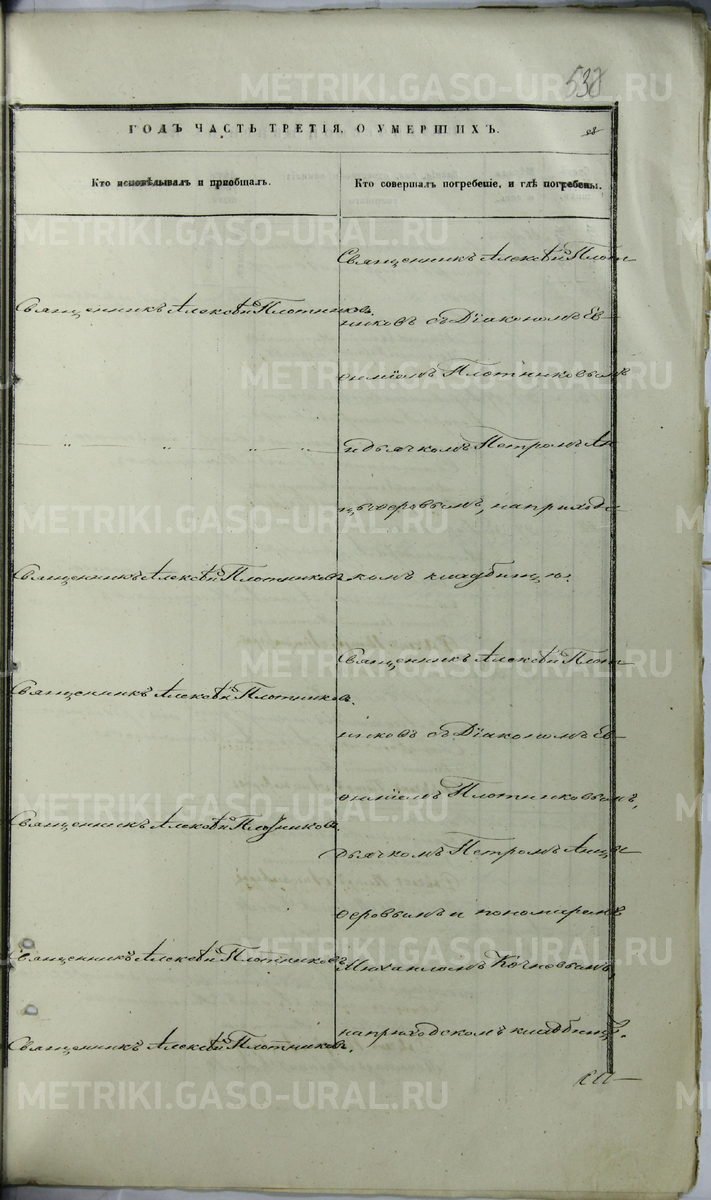 538
ГОДЪ ЧАСТЬ ТРЕТІЯ, О УМЕРШИХЪ.
Кто исповѣдывалъ и пріобщалъ.
Кто совершалъ погребеніе, и гдѣ погребены.
Священникъ Алексѣй Плотниковъ.
" " " "
Священникъ Алексѣй Плотниковъ.
Священникъ Алексѣй Плотниковъ.
Священникъ Алексѣй Плотниковъ.
Священникъ Алексѣй Плотниковъ.
Священникъ Алексѣй Плотниковъ.
Священникъ Алексѣй Плот
никовъ съ Діакономъ Ев
ѳиміемъ Плотниковымъ
и дьячкомъ Петромъ Ан
цыферовымъ, на приходс
комъ кладбищѣ.
Священникъ Алексѣй Плот
никовъ съ Діакономъ Ев
ѳиміемъ Плотниковымъ,
дьячкомъ Петромъ Анцы
феровымъ и пономаремъ
Михаиломъ
на приходскомъ кладбищѣ.
METRIKI.GASO-URAL.RU